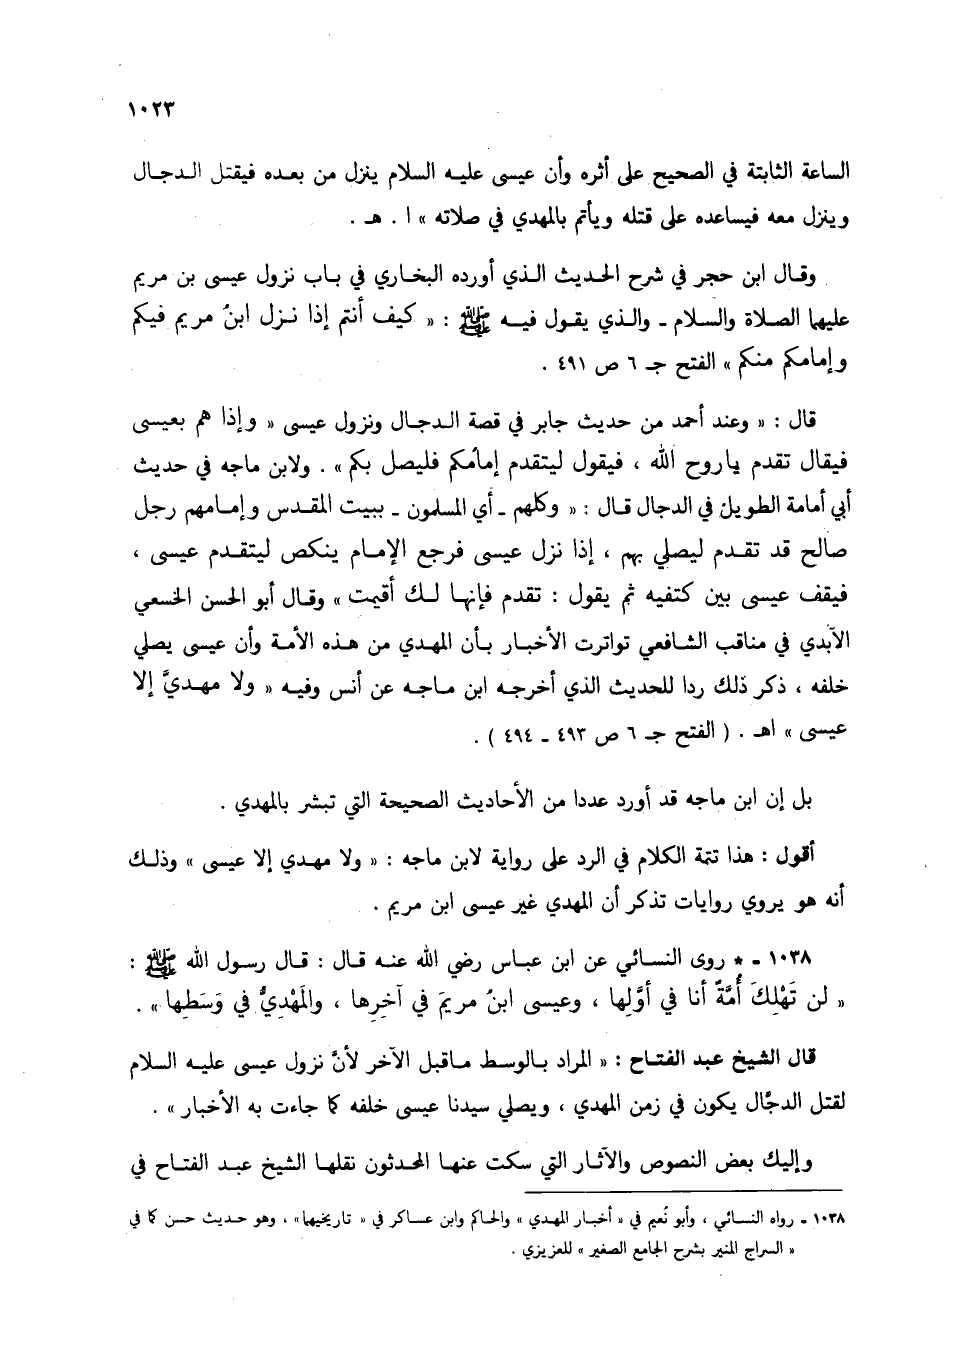 ١٠٢٣
الساعة الثابتة في الصحيح على أثره وأن عيسى عليه السلام ينزل من بعده فيقتل الدجال
وينزل معه فيساعده على قتله ويأتم بالمهدي في صلاته » ا . هـ .
وقال ابن حجر في شرح الحديث الذي أورده البخاري في باب نزول عيسى بن مريم
عليهما الصلاة والسلام ـ والذي يقول فيه ﷺ : « كيف أنتم إذا نزل ابنُ مريم فيكم
وإمامكم منكم » الفتح جـ ٦ ص ٤٩١ .
قال : « وعند أحمد من حديث جابر في قصة الدجال ونزول عيسى « وإذا هم بعيسى
فيقال تقدم ياروح الله ، فيقول ليتقدم إمامُكم فليصل بكم » . ولابن ماجه في حديث
أبي أمامة الطويل في الدجال قال : « وكلهم ـ أي المسلمون ـ ببيت المقدس وإمامهم رجل
صالح قد تقدم ليصلي بهم ، إذا نزل عيسى فرجع الإمام ينكص ليتقدم عيسى ،
فيقف عيسى بين كتفيه ثم يقول : تقدم فإنها لك أقيمت » وقال أبو الحسن الخسعي
الآبدي في مناقب الشافعي تواترت الأخبار بأن المهدي من هذه الأمة وأن عيسى يصلي
خلفه ، ذكر ذلك ردا للحديث الذي أخرجه ابن ماجه عن أنس وفيه « ولا مهديَّ إلا
عيسى » اهـ . ( الفتح جـ ٦ ص ٤٩٣ ـ ٤٩٤ ) .
بل إن ابن ماجه قد أورد عددا من الأحاديث الصحيحة التي تبشر بالمهدي .
أقول : هذا تتمة الكلام في الرد على رواية لابن ماجه : « ولا مهدي إلا عيسى » وذلك
أنه هو يروي روايات تذكر أن المهدي غير عيسى ابن مريم .
١٠٣٨ ـ * روى النسائي عن ابن عباس رضي الله عنه قال : قال رسول الله ﷺ :
« لن تَهْلِكَ أُمَّةٌ أنا في أوَّلِها ، وعيسى ابنُ مريمَ في آخرِها ، والمَهْدِيُّ في وَسَطِها » .
قال الشيخ عبد الفتاح : « المراد بالوسط ماقبل الآخر لأنَّ نزول عيسى عليه السلام
لقتل الدجَّال يكون في زمن المهدي ، ويصلي سيدنا عيسى خلفه كما جاءت به الأخبار » .
وإليك بعض النصوص والآثار التي سكت عنها المحدثون نقلها الشيخ عبد الفتاح في
١٠٣٨ ـ رواه النسائي ، وأبو نُعيم في « أخبار المهدي » والحاكم وابن عساكر في « تاريخيهما » ، وهو حديث حسن كما في
« السراج المنير بشرح الجامع الصغير » للعزيزي .